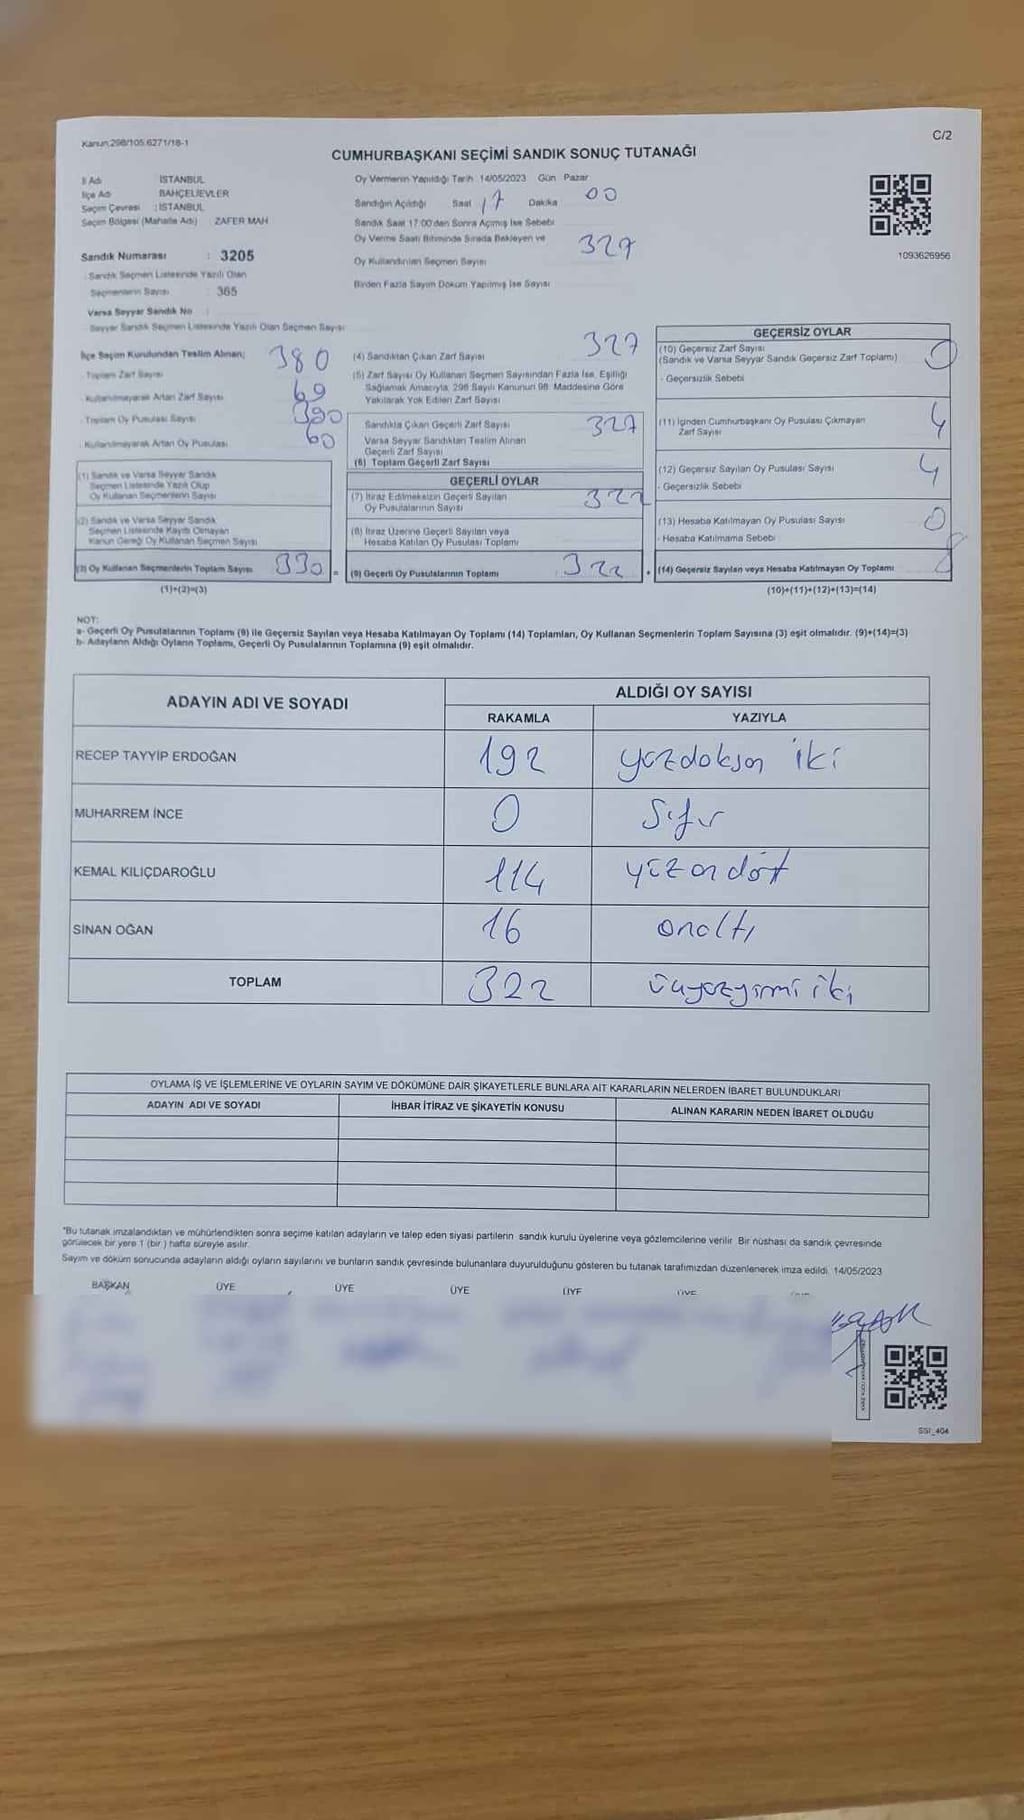 Kanun:298/105.6271/18-1
C/2
CUMHURBAŞKANI SEÇİMİ SANDIK SONUÇ TUTANAĞI
İl Adı : İSTANBUL
İlçe Adı : BAHÇELİEVLER
Seçim Çevresi : İSTANBUL
Seçim Bölgesi (Mahalle Adı) ZAFER MAH
Sandık Numarası : 3205
Sandık Seçmen Listesinde Yazılı Olan
Seçmenlerin Sayısı : 365
Varsa Seyyar Sandık No :
Seyyar Sandık Seçmen Listesinde Yazılı Olan Seçmen Sayısı
Oy Vermenin Yapıldığı Tarih 14/05/2023 Gün Pazar
Sandığın Açıldığı Saat 17 Dakika 00
Sandık Saat 17:00'den Sonra Açılmış İse Sebebi
Oy Verme Saati Bitiminde Sırada Bekleyen ve
Oy Kullandırılan Seçmen Sayısı 327
Birden Fazla Sayım Döküm Yapılmış İse Sayısı
1093626956
İlçe Seçim Kurulundan Teslim Alınan;
Toplam Zarf Sayısı 380
Kullanılmayarak Artan Zarf Sayısı 69
Toplam Oy Pusulası Sayısı 390
Kullanılmayarak Artan Oy Pusulası 60
(1) Sandık ve Varsa Seyyar Sandık
Seçmen Listesinde Yazılı Olup
Oy Kullanan Seçmenlerin Sayısı
(2) Sandık ve Varsa Seyyar Sandık
Seçmen Listesinde Kayıtlı Olmayan
Kanun Gereği Oy Kullanan Seçmen Sayısı
(3) Oy Kullanan Seçmenlerin Toplam Sayısı 330 =
(1)+(2)=(3)
(4) Sandıktan Çıkan Zarf Sayısı 327
(5) Zarf Sayısı Oy Kullanan Seçmen Sayısından Fazla İse, Eşitliği
Sağlamak Amacıyla, 298 Sayılı Kanunun 98. Maddesine Göre
Yakılarak Yok Edilen Zarf Sayısı
Sandıkta Çıkan Geçerli Zarf Sayısı 327
Varsa Seyyar Sandıktan Teslim Alınan
Geçerli Zarf Sayısı
(6) Toplam Geçerli Zarf Sayısı
GEÇERLİ OYLAR
(7) İtiraz Edilmeksizin Geçerli Sayılan
Oy Pusulalarının Sayısı 322
(8) İtiraz Üzerine Geçerli Sayılan veya
Hesaba Katılan Oy Pusulası Toplamı
(9) Geçerli Oy Pusulalarının Toplamı 322 +
GEÇERSİZ OYLAR
(10) Geçersiz Zarf Sayısı 0
(Sandık ve Varsa Seyyar Sandık Geçersiz Zarf Toplamı)
- Geçersizlik Sebebi
(11) İçinden Cumhurbaşkanı Oy Pusulası Çıkmayan
Zarf Sayısı 4
(12) Geçersiz Sayılan Oy Pusulası Sayısı 4
- Geçersizlik Sebebi
(13) Hesaba Katılmayan Oy Pusulası Sayısı 0
- Hesaba Katılmama Sebebi
(14) Geçersiz Sayılan veya Hesaba Katılmayan Oy Toplamı 8
(10)+(11)+(12)+(13)=(14)
NOT:
a- Geçerli Oy Pusulalarının Toplamı (9) ile Geçersiz Sayılan veya Hesaba Katılmayan Oy Toplamı (14) Toplamları, Oy Kullanan Seçmenlerin Toplam Sayısına (3) eşit olmalıdır. (9)+(14)=(3)
b- Adayların Aldığı Oyların Toplamı, Geçerli Oy Pusulalarının Toplamına (9) eşit olmalıdır.
ADAYIN ADI VE SOYADI
ALDIĞI OY SAYISI
RAKAMLA YAZIYLA
RECEP TAYYİP ERDOĞAN 192 yüzdoksan iki
MUHARREM İNCE 0 Sıfır
KEMAL KILIÇDAROĞLU 114 yüzondört
SİNAN OĞAN 16 onaltı
TOPLAM 322 üçyüzyirmi iki
OYLAMA İŞ VE İŞLEMLERİNE VE OYLARIN SAYIM VE DÖKÜMÜNE DAİR ŞİKAYETLERLE BUNLARA AİT KARARLARIN NELERDEN İBARET BULUNDUKLARI
ADAYIN ADI VE SOYADI İHBAR İTİRAZ VE ŞİKAYETİN KONUSU ALINAN KARARIN NEDEN İBARET OLDUĞU
*Bu tutanak imzalandıktan ve mühürlendikten sonra seçime katılan adayların ve talep eden siyasi partilerin sandık kurulu üyelerine veya gözlemcilerine verilir. Bir nüshası da sandık çevresinde
görülecek bir yere 1 (bir ) hafta süreyle asılır.
Sayım ve döküm sonucunda adayların aldığı oyların sayılarını ve bunların sandık çevresinde bulunanlara duyurulduğunu gösteren bu tutanak tarafımızdan düzenlenerek imza edildi. 14/05/2023
BAŞKAN ÜYE ÜYE ÜYE ÜYE ÜYE
SSI_404